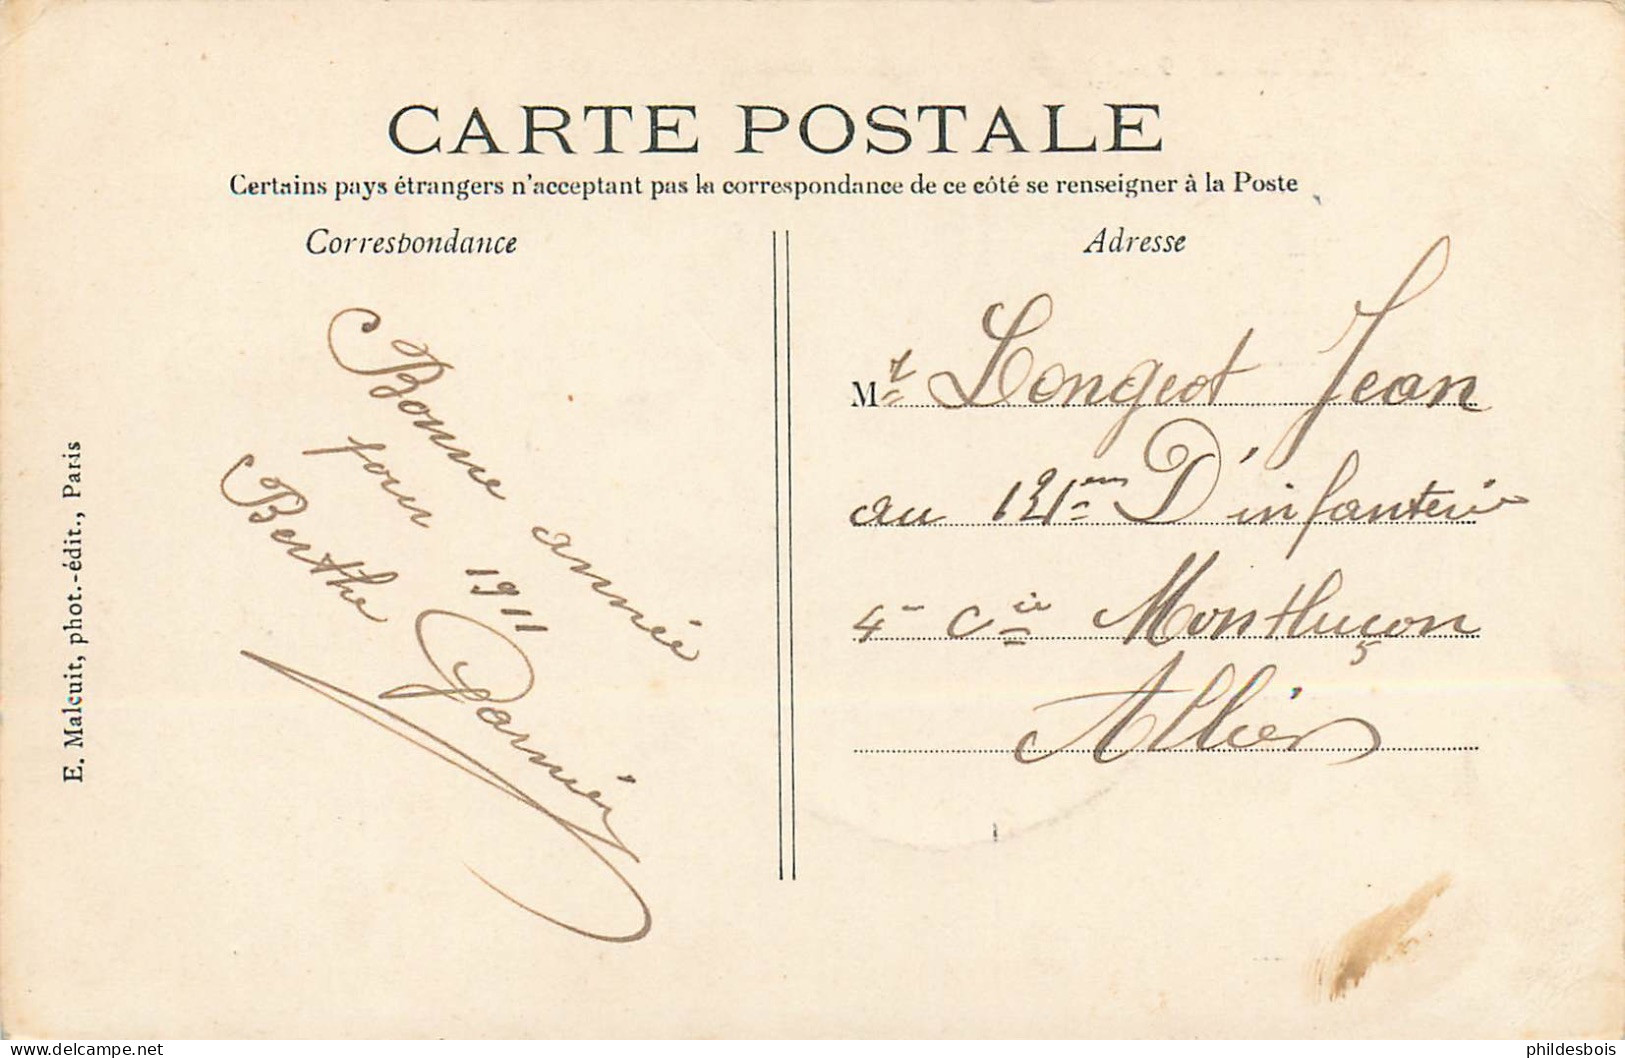 CARTE POSTALE
Certains pays étrangers n'acceptant pas la correspondance de ce côté se renseigner à la Poste
Correspondance
Bonne année
pour 1911
Berthe Garnier
Adresse
Mr Longeot Jean
au 121em D'infanterie
4e Cie Montluçon
Allier
E. Malcuit, phot.-édit., Paris
phildesbois